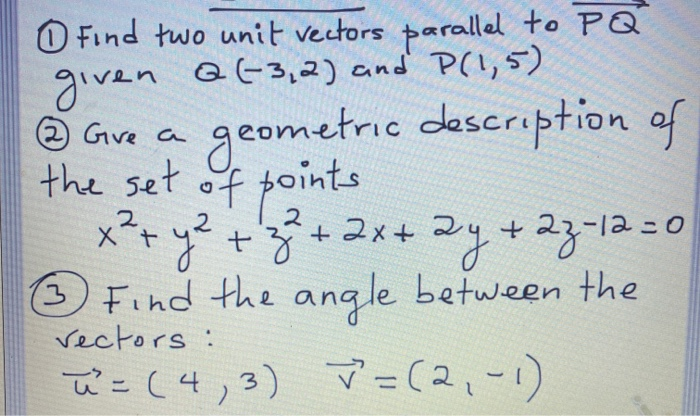 ① Find two unit vectors parallel to PQ
given Q(-3,2) and P(1,5)
② Give a geometric description of
the set of points
x² + y² + z² + 2x + 2y + 2z - 12 = 0
③ Find the angle between the
vectors :
u⃗ = (4, 3) v⃗ = (2, -1)